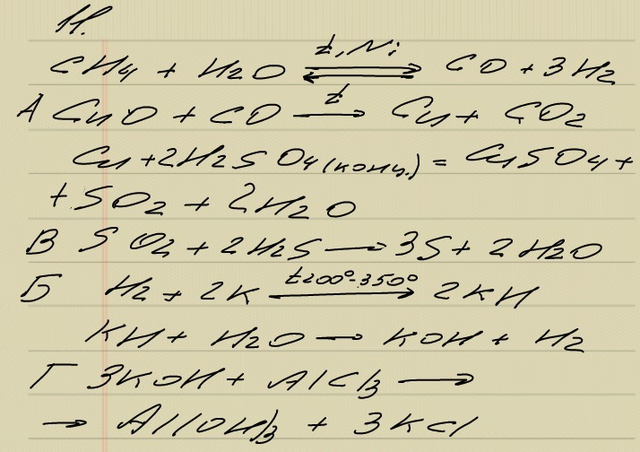 Н.
t, Ni
CH4 + H2O ⇌ CO + 3H2
А CuO + CO —t→ Cu + CO2
Cu + 2H2SO4(конц.) = CuSO4 +
+ SO2 + 2H2O
В SO2 + 2H2S → 3S + 2H2O
t200°-350°
Б H2 + 2K → 2KH
KH + H2O → KOH + H2
Г 3KOH + AlCl3 →
→ Al(OH)3 + 3KCl